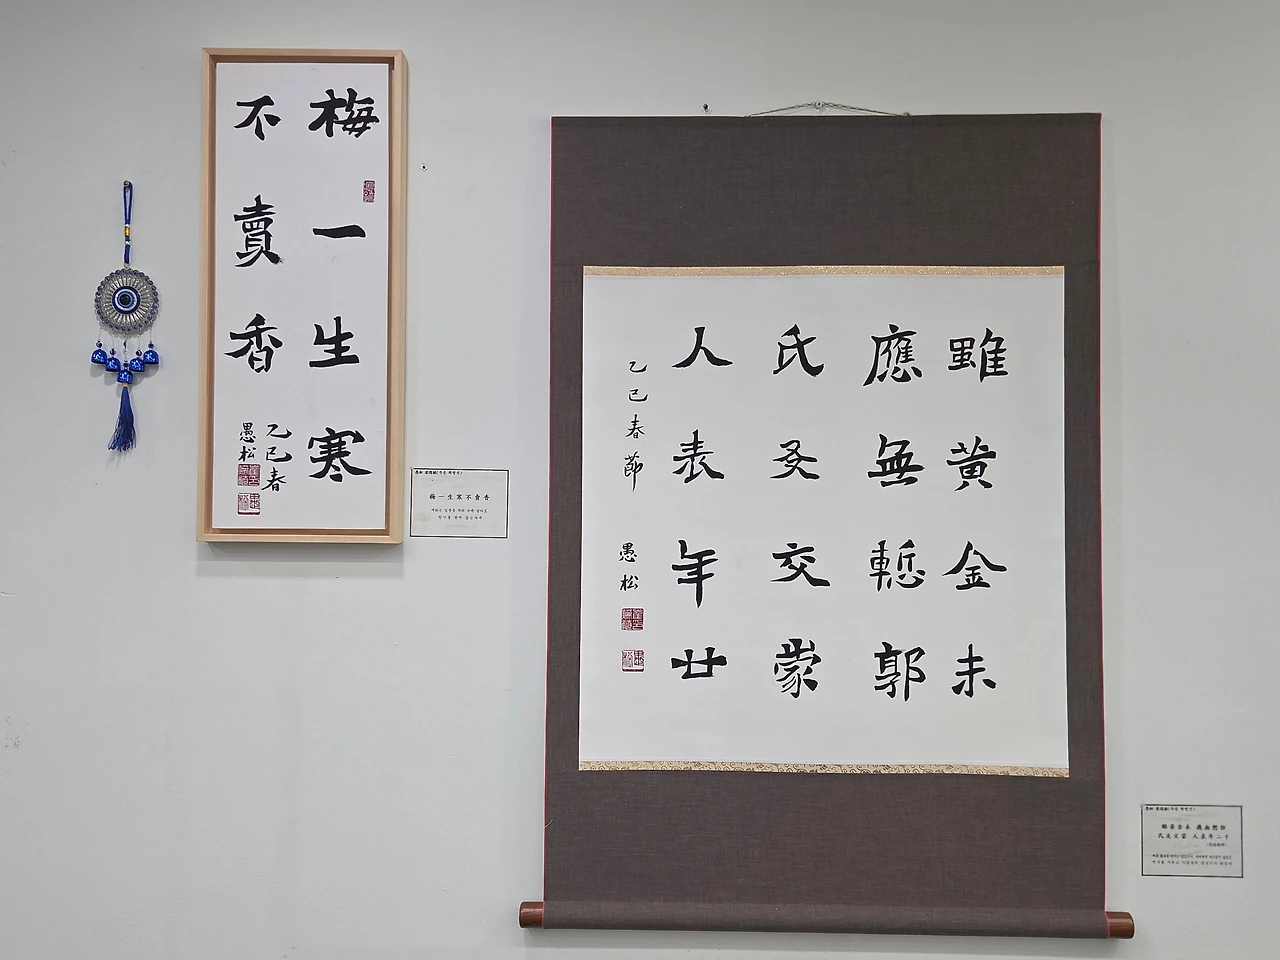 梅一生寒
不賣香
乙巳春
愚松
梅一生寒不賣香
雖黃金未
應無慙郭
氏友交蒙
人表年廿
乙巳春節
愚松